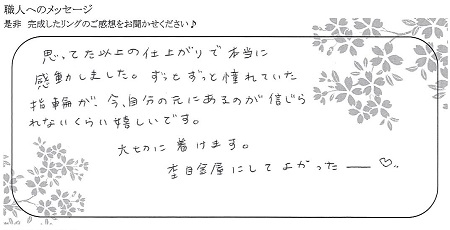 職人へのメッセージ
是非 完成したリングのご感想をお聞かせください♪
思ってた以上の仕上がりで本当に
感動しました。ずっとずっと憧れていた
指輪が、今、自分の元にあるのが信じら
れないくらい嬉しいです。
大切に着けます。
杢目金屋にしてよかったー♡..